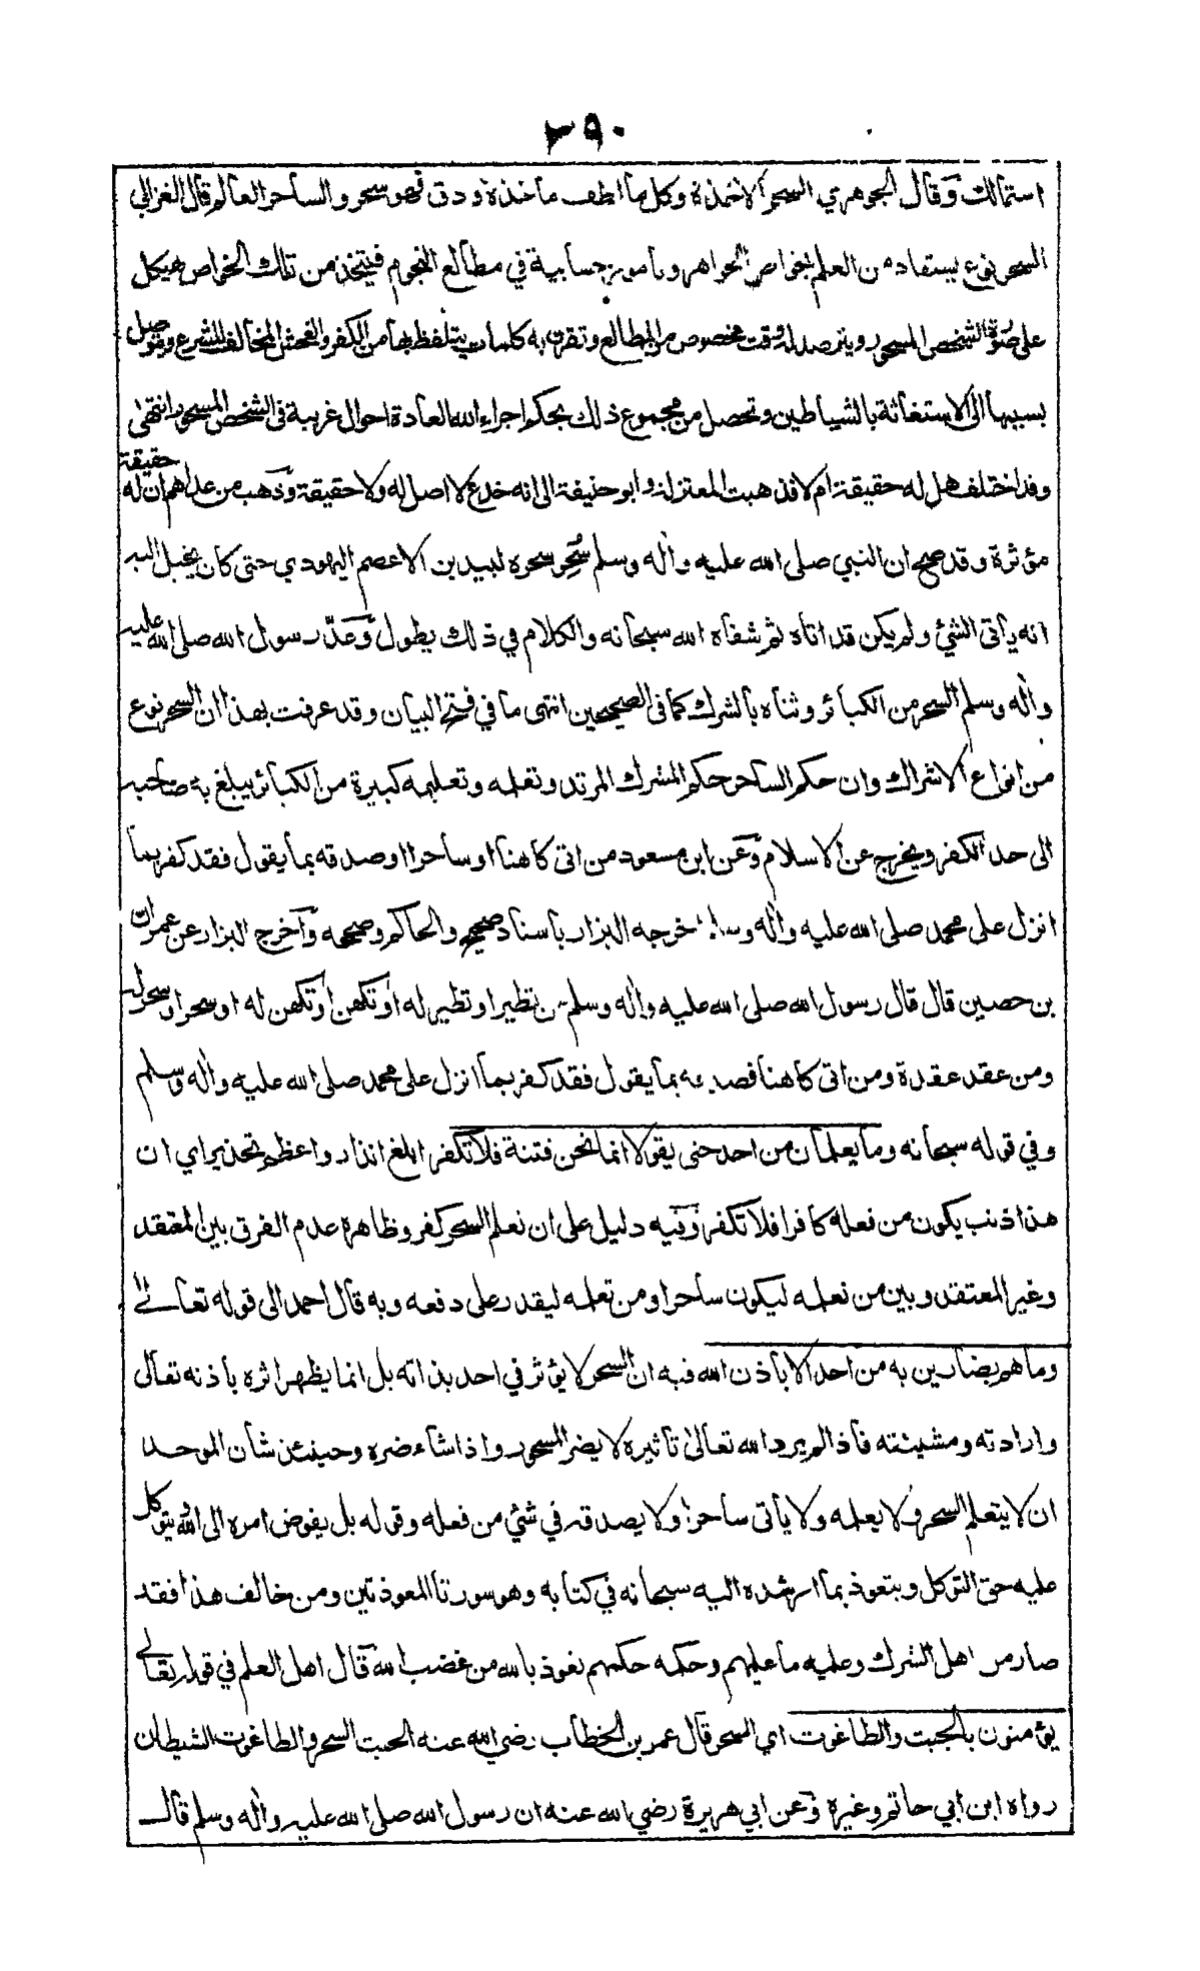 ٢٩٠
استمالك وقال الجوهري السحر الاخذة وكل ما لطف مأخذه ودق فهو سحر والساحر العالم قال الغزالي
السحر نوع يستفاد من العلم بخواص الجواهر وبامور حسابية في مطالع النجوم فيتخذ من تلك الخواص هيكل
على صورة الشخص المسحور ويترصد له وقت مخصوص من المطالع وتقرن به كلمات يتلفظ بها من الكفر والفحش المخالف للشرع ويتوصل
بسببها الى الاستغاثة بالشياطين وتحصل من مجموع ذلك بحكم اجراء الله العادة احوال غريبة في الشخص المسحور انتهى
وقد اختلف هل له حقيقة ام لا فذهبت المعتزلة وابو حنيفة الى انه خدع لا اصل له ولا حقيقة وذهب من عداهم ان له حقيقة
مؤثرة وقد صح ان النبي صلى الله عليه واٰله وسلم سُحِر سحره لبيد بن الاعصم اليهودي حتى كان يخيل اليه
انه يأتى الشئ ولم يكن قد اتاه ثم شفاه الله سبحانه والكلام في ذلك يطول وعدّ رسول الله صلى الله عليه
واٰله وسلم السحر من الكبائر وثناه بالشرك كما فى الصحيحين انتهى ما في فتح البيان وقد عرفت بهذا ان السحر نوع
من انواع الاشراك وان حكم الساحر حكم المشرك المرتد وتعلمه وتعليمه كبيرة من الكبائر يبلغ به صاحبه
الى حد الكفر ويخرج عن الاسلام وعن ابن مسعود من اتى كاهنا او ساحرا وصدقه بما يقول فقد كفر بما
انزل على محمد صلى الله عليه واٰله وسلم اخرجه البزار باسناد صحيح والحاكم وصححه وآخرج البزار عن عمران
بن حصين قال قال رسول الله صلى الله عليه واٰله وسلم من تطير او تطير له او تكهن او تكهن له او سحر او سحر له
ومن عقد عقدة ومن اتى كاهنا فصدقه بما يقول فقد كفر بما انزل على محمد صلى الله عليه واٰله وسلم
وفي قوله سبحانه وما يعلمان من احد حتى يقولا انما نحن فتنة فلا تكفر ابلغ انذار واعظم تحذير اي ان
هذا ذنب يكون من فعله كافرا فلا تكفر وفيه دليل على ان تعلم السحر كفر وظاهره عدم الفرق بين المعتقد
وغير المعتقد وبين من تعلمه ليكون ساحرا ومن تعلمه ليقدر على دفعه وبه قال احمد الى قوله تعالى
وما هم بضارين به من احد الا باذن الله فيه ان السحر لا يؤثر في احد بذاته بل انما يظهر اثره باذنه تعالى
وارادته ومشيئته فاذا لم يرد الله تعالى تأثيره لا يضر المسحور واذا شاء ضره وحينئذ شأن الموحد
ان لا يتعلم السحر ولا يعلمه ولا يأتى ساحرا ولا يصدقه في شئ من فعله وقوله بل يفوض امره الى الله ويتوكل
عليه حق التوكل ويتعوذ بما ارشده اليه سبحانه في كتابه وهو سورتا المعوذتين ومن خالف هذا فقد
صار من اهل الشرك وعليه ما عليهم وحكمه حكمهم نعوذ بالله من غضب الله قال اهل العلم في قوله تعالى
يؤمنون بالجبت والطاغوت اي السحر قال عمر بن الخطاب رضي الله عنه الجبت السحر والطاغوت الشيطان
رواه ابن ابي حاتم وغيره وعن ابي هريرة رضي الله عنه ان رسول الله صلى الله عليه واٰله وسلم قال